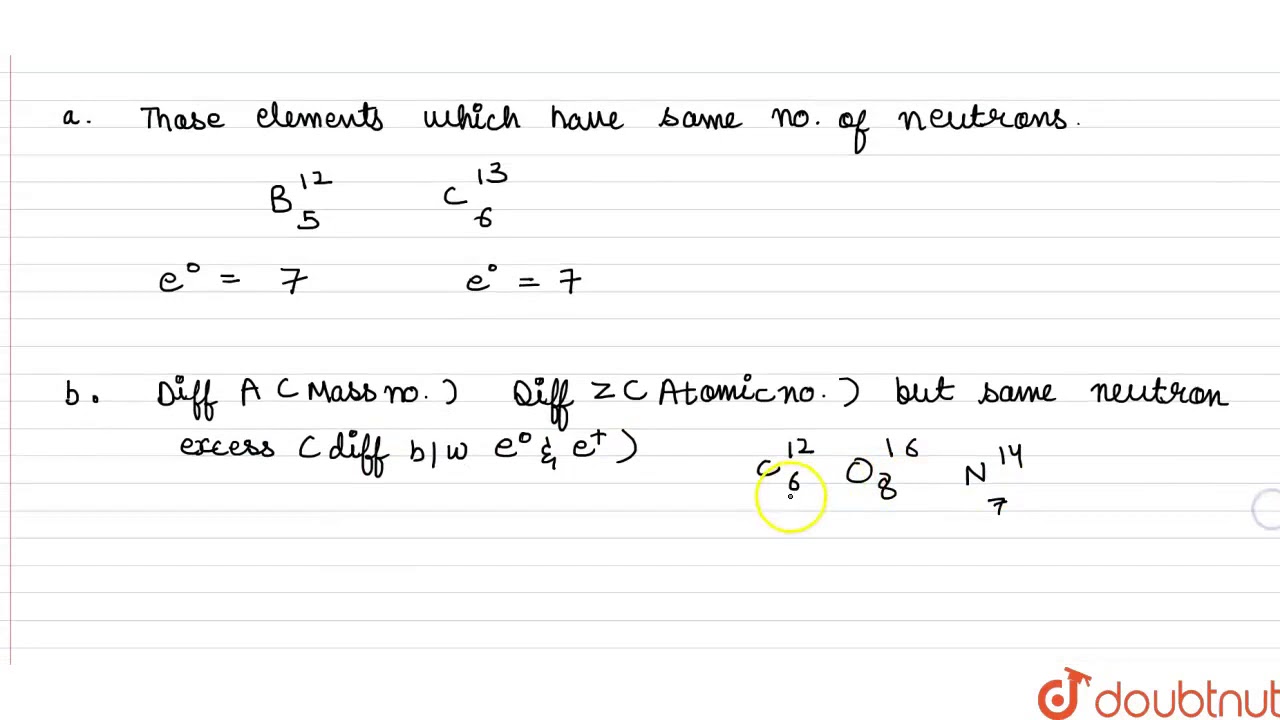 a. Those elements which have same no. of neutrons.
B 12 5 C 13 6
e⁰ = 7 e⁰ = 7
b. Diff A (Mass no.) Diff Z (Atomic no.) but same neutron
excess (diff b/w e⁰ & e⁺)
C 12 6 O 16 8 N 14 7
doubtnut